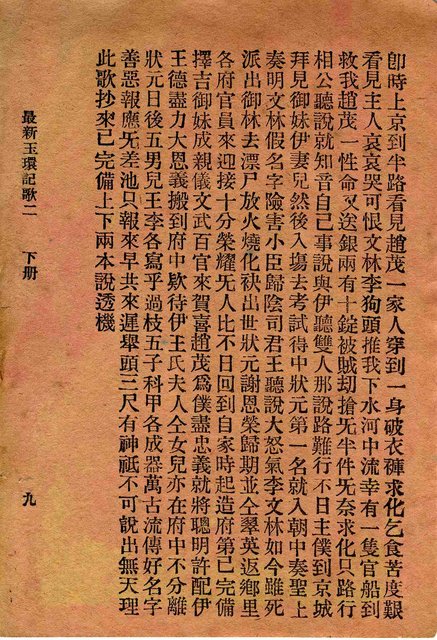 卽時上京到半路看見趙茂一家人穿到一身破衣褲求化乞食苦度艱
看見主人哀哀哭可恨文林李狗頭推我下水河中流幸有一隻官船到
救我趙茂一性命又送銀兩有十錠被賊刧搶旡半件旡奈求化只路行
相公聽說就知音自己事說與伊聽雙人那說路難行不日主僕到京城
拜見御妹伊妻兒然後入塲去考試得中狀元第一名就入朝中奏聖上
奏明文林假名字險害小臣歸陰司君王聽說大怒氣李文林如今雖死
派出御林去漂尸放火燒化袂出世狀元謝恩榮歸期並仝翠英返鄉里
各府官員來迎接十分榮耀旡人比不日回到自家時起造府第已完備
擇吉御妹成親儀文武百官來賀喜趙茂爲僕盡忠義就將聰明許配伊
王德盡力大恩義搬到府中欵待伊王氏夫人仝女兒亦在府中不分離
狀元日後五男兒王李各寫乎過枝五子科甲各成器萬古流傳好名字
善惡報應旡差池只報來早共來遲舉頭三尺有神祗不可說出無天理
此歌抄來已完備上下兩本說透機
最新玉環記歌二 下册 九